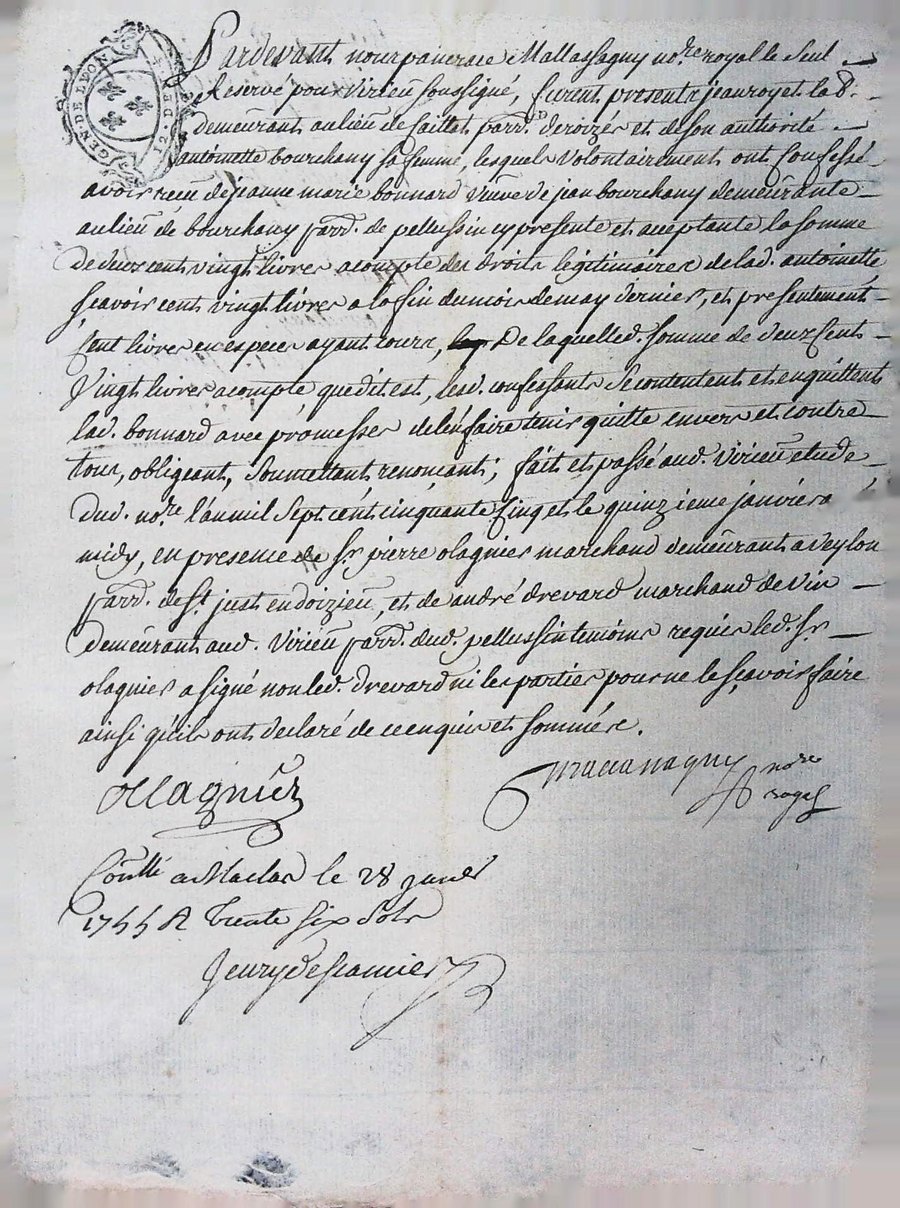 GEN. DE LYON
Pardevant nous pancrace Mallassagny no.re royal le seul
Reservé pour virieu soussigné, furent presents jean royet lab.r
demeurant au lieu de saillat parr. de roizés et de son authorité
antoinette bourchany sa femme, lesquels volontairement ont confessé
avoir reçu de jeanne marie bonnard veuve de jean bourchany demeurante
au lieu de bourchany parr. de pellussin cy presente et aceptante la somme
de deux cent vingt livres a compte des droits legitimaires de lad. antoinette
sçavoir cent vingt livres a la fin du mois de may dernier, et presentement
cent livres en especes ayant cours, De laquelle d. somme de deux cents
Vingt livres a compte que dit est, lesd. confessants se contentent et en quittent
lad. bonnard avec promesses de l'en faire tenir quitte envers et contre
tous, obligeant, soumettant, renonçant; fait et passé aud. Virieu etude
dud. no.re l'an mil sept cent cinquante cinq et le quinzieme janvier a
midy, en presence de sr. pierre olagnier marchand demeurant a veylon
parr. de st. just en doizieu, et de andré drevard marchand de vin
demeurant aud. Virieu parr. dud. pellussin temoins requis led. sr.
olagnier a signé non led. drevard ni les parties pour ne le sçavoir faire
ainsi qu'ils ont declaré de ce enquis et sommés.
ollagnier
Mallassagny no.re
royal
Con.lé a Maclas le 28 janer
1755 R trente six sols